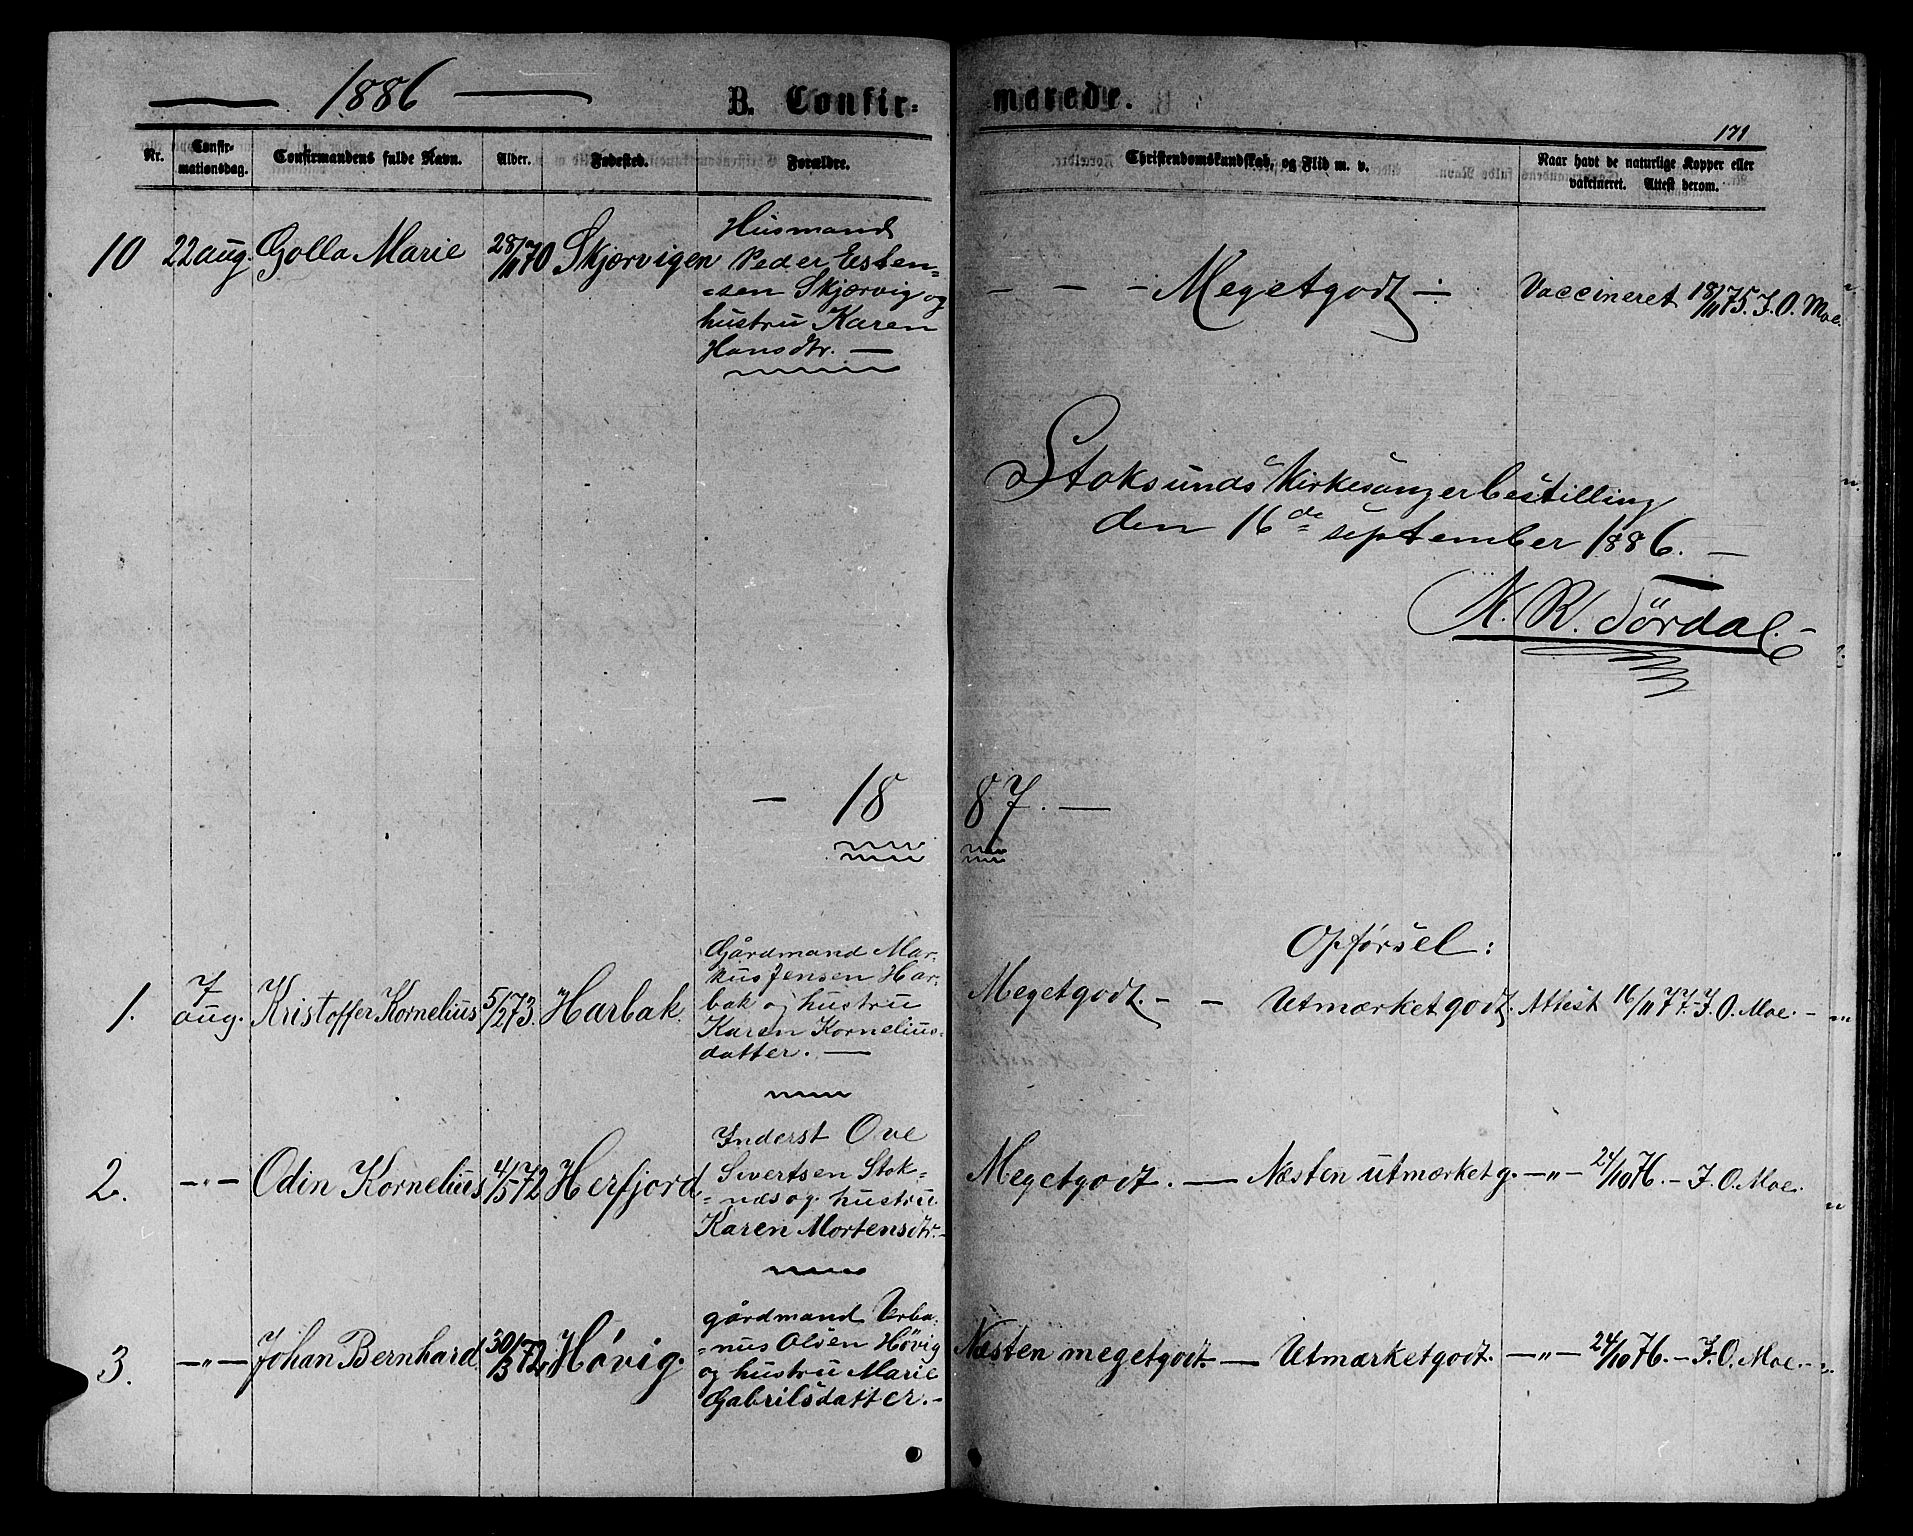 1886
B. Confir-
marede.
171
Nr.
Confir-
mationsdag.
Confirmandens fulde Navn.
Alder.
Fødested.
Forældre.
Christendomskundskab, og Flid m. v.
Naar havt de naturlige Kopper eller
vaccineret. Attest derom.
10 22 aug. Golla Marie 28/11 70 Skjærvigen
Husmand
Peder Esten-
=sen Skjærvig og
hustru Karen
Hansdtr. —
— — — Megetgodt — Vaccineret 18/11 75. J. O. Moe.
Stoksunds Kirkesangerbestilling
den 16de september 1886. —
N. R. Tördal. —
— 18 87. —
Opførsel:
1. 7 aug. Kristoffer Kornelius 5/2 73. Harbak.
Gårdmand Mar-
kus Jensen Har-
bak og hustru
Karen Kornelius-
datter. —
Megetgodt. — — Utmærket godt. Attest 16/11 77. J. O. Moe. —
2. —"— Odin Kornelius 4/5 72 Herfjord
Inderst Ove
Sivertsen Stok-
=næs og hustru
Karen Mortensdtr. —
Megetgodt. — Næsten utmærket g. —"— 24/10 76. — J. O. Moe.
3. —"— Johan Bernhard 30/3 72 Høvig.
gårdmand Urba-
=nus Olsen Høvig
og hustru Marie
Gabrilsdatter. —
Næsten megetgodt. — Utmærketgodt. —"— 24/10 76. — J. O. Moe. —